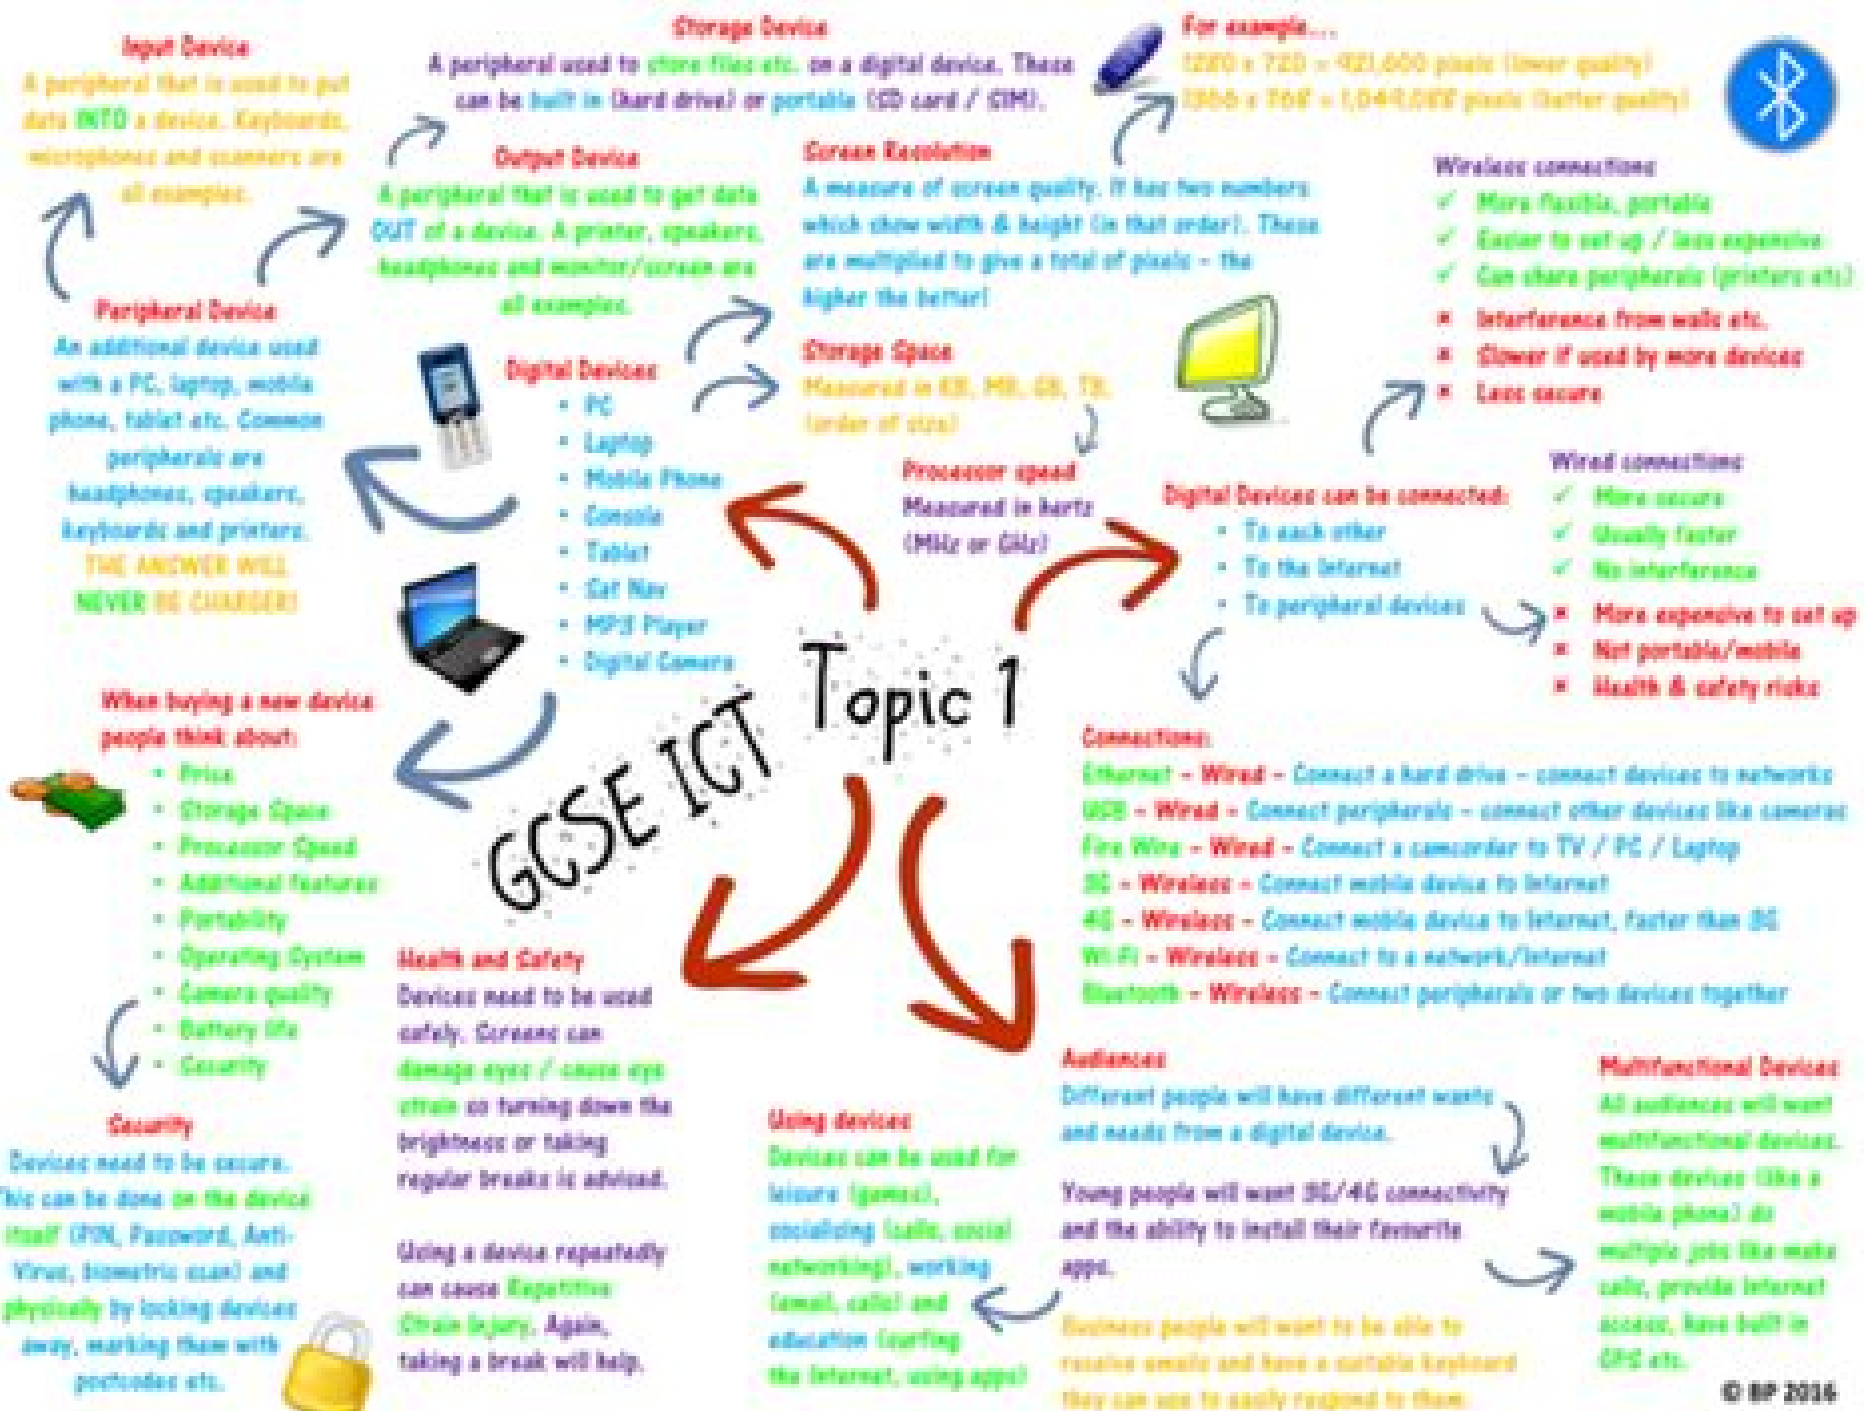 Input Device
A peripheral that is used to put
data INTO a device. Keyboards,
microphones and scanners are
all examples.
Storage Device
A peripheral used to store files etc. on a digital device. These
can be built in (hard drive) or portable (SD card / SIM).
For example...
1280 x 720 = 921,600 pixels (lower quality)
1366 x 768 = 1,049,088 pixels (better quality)
Output Device
A peripheral that is used to get data
OUT of a device. A printer, speakers,
headphones and monitor/screen are
all examples.
Screen Resolution
A measure of screen quality. It has two numbers
which show width & height (in that order). These
are multiplied to give a total of pixels - the
higher the better!
Wireless connections
✓ More flexible, portable
✓ Easier to set up / less expensive
✓ Can share peripherals (printers etc)
× Interference from walls etc.
× Slower if used by more devices
× Less secure
Peripheral Device
An additional device used
with a PC, laptop, mobile
phone, tablet etc. Common
peripherals are
headphones, speakers,
keyboards and printers.
THE ANSWER WILL
NEVER BE CHARGER!
Digital Devices
• PC
• Laptop
• Mobile Phone
• Console
• Tablet
• Sat Nav
• MP3 Player
• Digital Camera
Storage Space
Measured in KB, MB, GB, TB.
(order of size)
Processor speed
Measured in hertz
(MHz or GHz)
Digital Devices can be connected:
• To each other
• To the Internet
• To peripheral devices
Wired connections
✓ More secure
✓ Usually faster
✓ No interference
× More expensive to set up
× Not portable/mobile
× Health & safety risks
GCSE ICT Topic 1
When buying a new device
people think about:
• Price
• Storage Space
• Processor Speed
• Additional features
• Portability
• Operating System
• Camera quality
• Battery life
• Security
Connections:
Ethernet - Wired - Connect a hard drive - connect devices to networks
USB - Wired - Connect peripherals - connect other devices like cameras
Fire Wire - Wired - Connect a camcorder to TV / PC / Laptop
3G - Wireless - Connect mobile device to Internet
4G - Wireless - Connect mobile device to Internet, faster than 3G
Wi-Fi - Wireless - Connect to a network/Internet
Bluetooth - Wireless - Connect peripherals or two devices together
Health and Safety
Devices need to be used
safely. Screens can
damage eyes / cause eye
strain so turning down the
brightness or taking
regular breaks is advised.
Using a device repeatedly
can cause Repetitive
Strain Injury. Again,
taking a break will help.
Security
Devices need to be secure.
This can be done on the device
itself (PIN, Password, Anti-
Virus, biometric scan) and
physically by locking devices
away, marking them with
postcodes etc.
Using devices
Devices can be used for
leisure (games),
socialising (calls, social
networking), working
(email, calls) and
education (surfing
the Internet, using apps)
Audiences
Different people will have different wants
and needs from a digital device.
Young people will want 3G/4G connectivity
and the ability to install their favourite
apps.
Business people will want to be able to
receive emails and have a suitable keyboard
they can use to easily respond to them.
Multifunctional Devices
All audiences will want
multifunctional devices.
These devices (like a
mobile phone) do
multiple jobs like make
calls, provide Internet
access, have built in
GPS etc.
© BP 2016